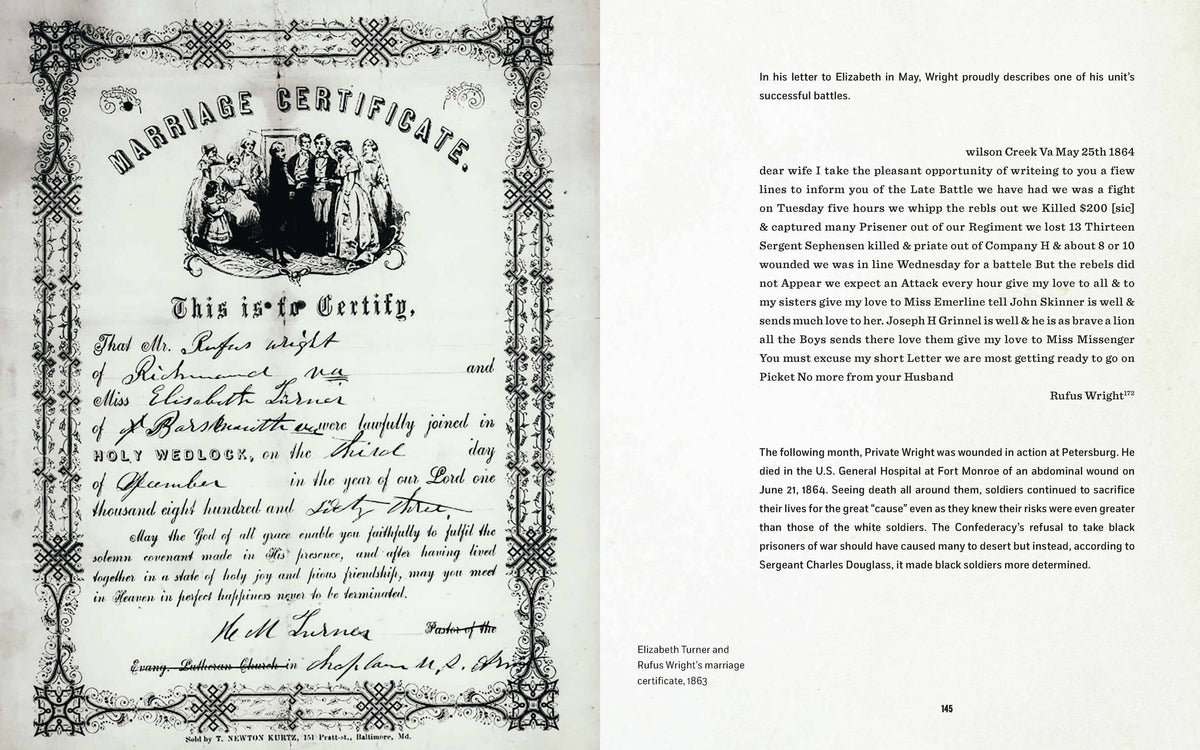 MARRIAGE CERTIFICATE.
This is to Certify,
That Mr. Rufus Wright
of Richmond va and
Miss Elisabeth Turner
of were lawfully joined in
HOLY WEDLOCK, on the third day
of December in the year of our Lord one
thousand eight hundred and Sixty three
May the God of all grace enable you faithfully to fulfil the
solemn covenant made in His presence, and after having lived
together in a state of holy joy and pious friendship, may you meet
in Heaven in perfect happiness never to be terminated.
H M Turner Pastor of the
Evang. Lutheran Church in Chaplain U, S, Army
Sold by T. NEWTON KURTZ, 151 Pratt-st., Baltimore, Md.
In his letter to Elizabeth in May, Wright proudly describes one of his unit's
successful battles.
wilson Creek Va May 25th 1864
dear wife I take the pleasant opportunity of writeing to you a fiew
lines to inform you of the Late Battle we have had we was a fight
on Tuesday five hours we whipp the rebls out we Killed $200 [sic]
& captured many Prisener out of our Regiment we lost 13 Thirteen
Sergent Sephensen killed & priate out of Company H & about 8 or 10
wounded we was in line Wednesday for a battele But the rebels did
not Appear we expect an Attack every hour give my love to all & to
my sisters give my love to Miss Emerline tell John Skinner is well &
sends much love to her. Joseph H Grinnel is well & he is as brave a lion
all the Boys sends there love them give my love to Miss Missenger
You must excuse my short Letter we are most getting ready to go on
Picket No more from your Husband
Rufus Wright172
The following month, Private Wright was wounded in action at Petersburg. He
died in the U.S. General Hospital at Fort Monroe of an abdominal wound on
June 21, 1864. Seeing death all around them, soldiers continued to sacrifice
their lives for the great “cause” even as they knew their risks were even greater
than those of the white soldiers. The Confederacy's refusal to take black
prisoners of war should have caused many to desert but instead, according to
Sergeant Charles Douglass, it made black soldiers more determined.
Elizabeth Turner and
Rufus Wright's marriage
certificate, 1863
145